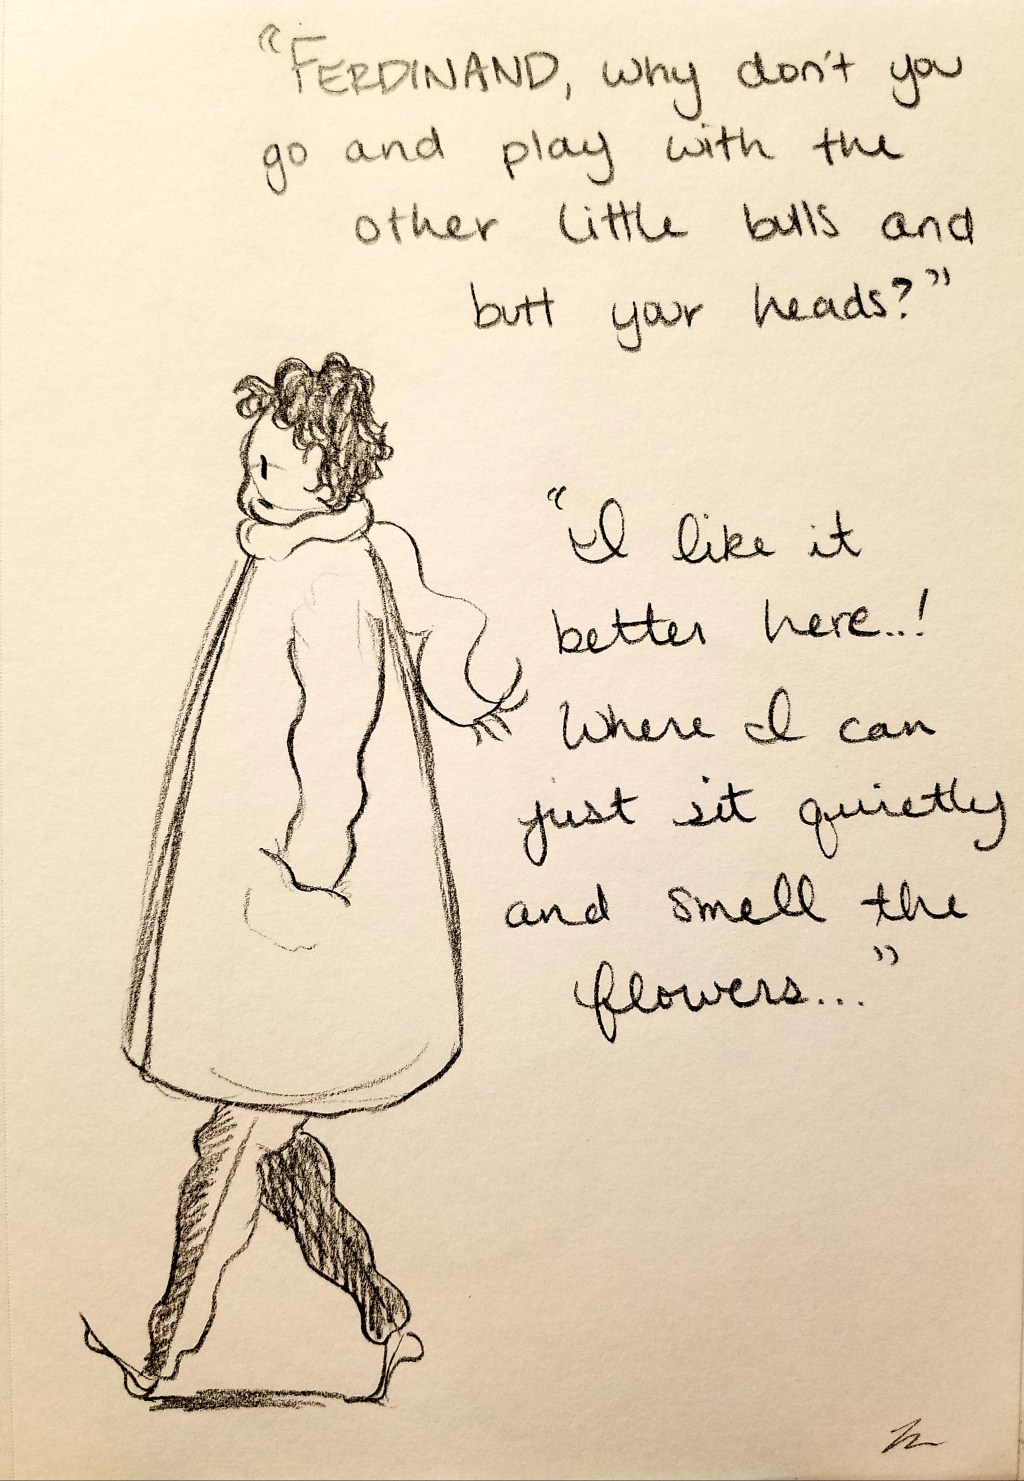 "FERDINAND, why don't you
go and play with the
other little bulls and
butt your heads?"
"I like it
better here..!
Where I can
just sit quietly
and smell the
flowers..."